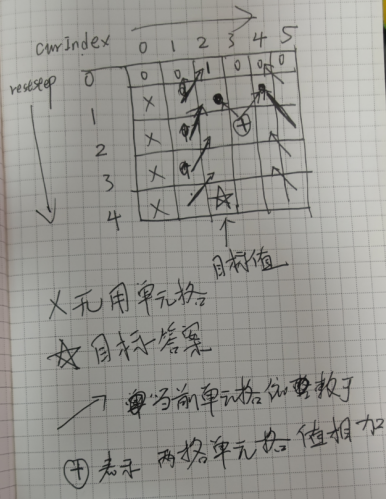 curIndex 0 1 2 3 4 5
0 0 0 1 0 0 0
reststep
X
1
X
2
X
3
X
4
目标值
X 无用单元格
☆ 目标答案
↗ 当前单元格依赖于
⊕ 表示 两格单元格值相加